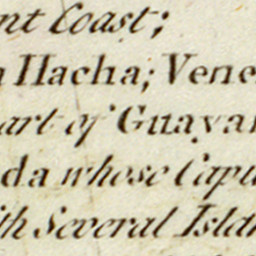 nt Coast;
Hacha; Vene
art of Guayan
da whose Capi
ith Several Isla